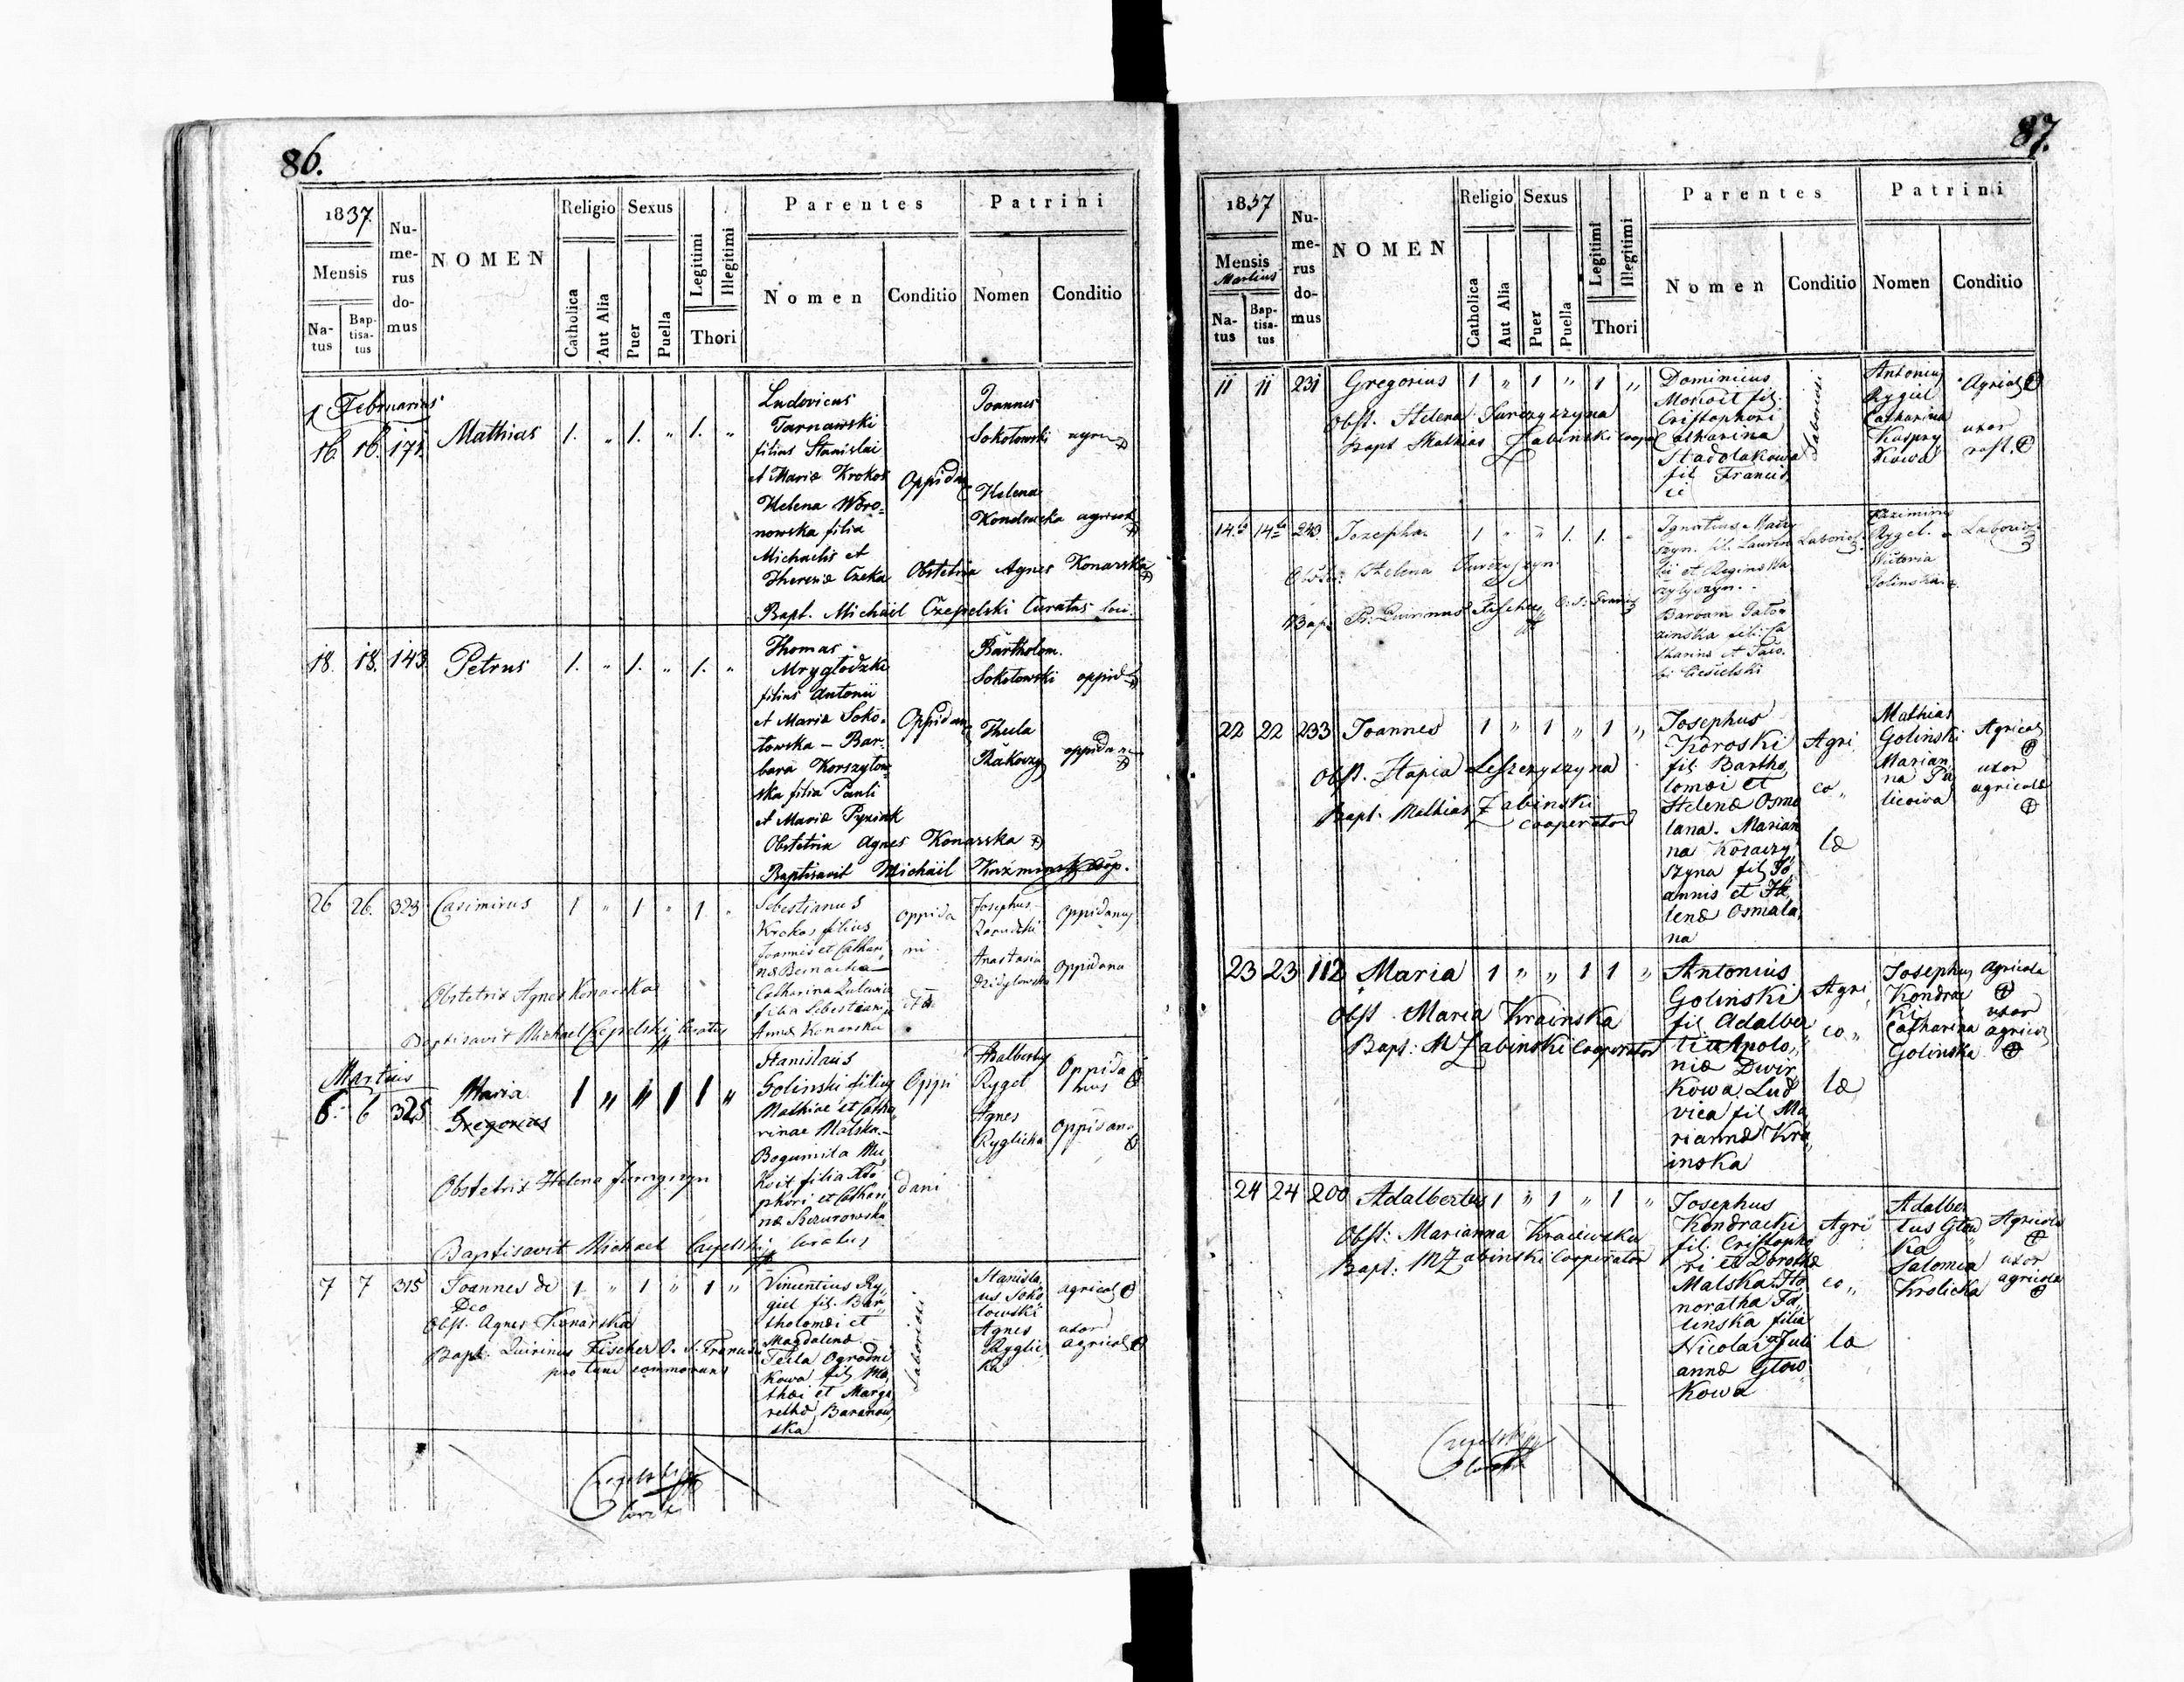 86.
1837.
Mensis
Na-
tus
Bap-
tisa-
tus
Nu-
me-
rus
do-
mus
NOMEN
Religio
Catholica
Aut Alia
Sexus
Puer
Puella
Legitimi
Illegitimi
Thori
Parentes
Nomen
Conditio
Patrini
Nomen
Conditio
Februarius
16. 16. 171. Mathias 1. " 1. " 1. "
Ludovicus
Tarnawski
filius Stanislai
et Mariæ Krokos
Helena Woro-
nowska filia
Michaelis et
Theresiæ Czeka
Oppidani
Joannes
Sokołowski
Helena
Kondracka agricola
Obstetrix Agnes Konarska
Bapt. Michäel Czepelski Curatus loci.
18. 18. 143. Petrus 1. " 1. " 1. "
Thomas
Mrygłodzki
filius Antonii
et Mariæ Soko-
łowska – Bar-
bara Korszyłow-
ska filia Pauli
et Mariæ Pyziak
Oppidani
Bartholom.
Sokołowski oppid
Thecla
Obstetrix Agnes Konarska
Baptisavit Michäil Kuźmiński Coop.
26 26. 323 Casimirus 1 " 1 " 1. "
Sebestianus
Krokos filius
Joannis et Cathari
næ Bernacka
Catharina
filia Sebestiani
Annæ Konarska
Oppida
ni
Josephus
Oppidanus
Anastasia
Oppidana
Obstetrix Agnes Konarska
Baptisavit Michael Czepelski Curatus
Martius
6. 6 325 Maria 1 " " 1 1 "
Gregorius
Stanislaus
Golinski filius
Mathiae et Catha
rinae Malska
Bogumila Mo
koit filia Xto
phori et Cathari
næ
Oppi
dani
Adalbertus
Rygel
Agnes
Ryglicka
Oppida
nus
Oppidana
Obstetrix Helena
Baptisavit Michael Czepelski Curatus
7 7 315 Joannes de 1 " 1 " 1 "
Deo
Obst. Agnes Konarska
Bapt. Quirinus Fischer O. S. Francisci
pro tunc commorans
Vincentius Ry,,
giel fil. Bar,,
tholomæi et
Magdalenæ
Tecla Ogrodni
kowa fil. Ma,,
thæi et Marga
rethæ Baranow
ska
Laboriosi
Stanisla,,
us Soko
łowski
Agnes
Ryglic
ka
agricola
uxor
agricolæ
Czepelski
Curatus
87.
1837
Mensis
Martius
Na-
tus
Bap-
tisa-
tus
Nu-
me-
rus
do-
mus
NOMEN
Religio
Catholica
Aut Alia
Sexus
Puer
Puella
Legitimi
Illegitimi
Thori
Parentes
Nomen
Conditio
Patrini
Nomen
Conditio
11 11 231 Gregorius 1 " 1 " 1 "
Obst. Helena Jurczyszyna
Bapt. Mathias Zabinski Cooper
Dominicus
Mokoit fil.
Cristophori
Catharina
Stadolakowa
fil Francis
ci
Laboriosi
Antonius
Rygiel
Catharina
Kaspry
kowa
Agricola
uxor
rust.
14. 14. 243. Josepha 1 " " 1. 1. "
Obst: Helena Jurczyszyn
Bap: Fr: Quirinus Fischer O: S: Francis
Ignatius
Laborios.
Casimirus
Rygel.
Golinska
Laborios
22 22 233 Joannes 1 " 1 " 1 "
Obst. Leszczyszyna
Bapt. Mathias Zabinski
Cooperator
Josephus
Koroski
fil. Bartho
lomæi et
Helenæ Osma
lana. Marian
na
szyna fil Jo
annis et He
lenæ Osmala
na
Agri
co,,
læ
Mathias
Golinski
Marian
na Pa
licowa
Agricola
uxor
agricolæ
23 23 112 Maria 1 " " 1 1 "
Obst. Maria Krainska
Bapt: M Zabinski Cooperator
Antonius
Golinski
fil. Adalber
ti et Apolo,,
niæ Dwir
kowa Lud
vica fil. Ma
riannæ Kra
inska
Agri
co,,
læ
Josephus
Kondrac
ki
Catharina
Golinska
Agricola
uxor
agricol
24 24 200 Adalbertus 1 " 1 " 1 "
Obst: Marianna Kraiewska
Bapt: M Zabinski Cooperator
Josephus
Kondracki
fil. Cristopho
ri et Dorothæ
Malska. Ho
noratha Fa
linska filia
Nicolai et Juli
annæ Glow
kowa
Agri
co,,
la
Adalber
tus Glow
ka
Salomea
Krolicka
Agricola
uxor
agricola
Czepelski
Curatus